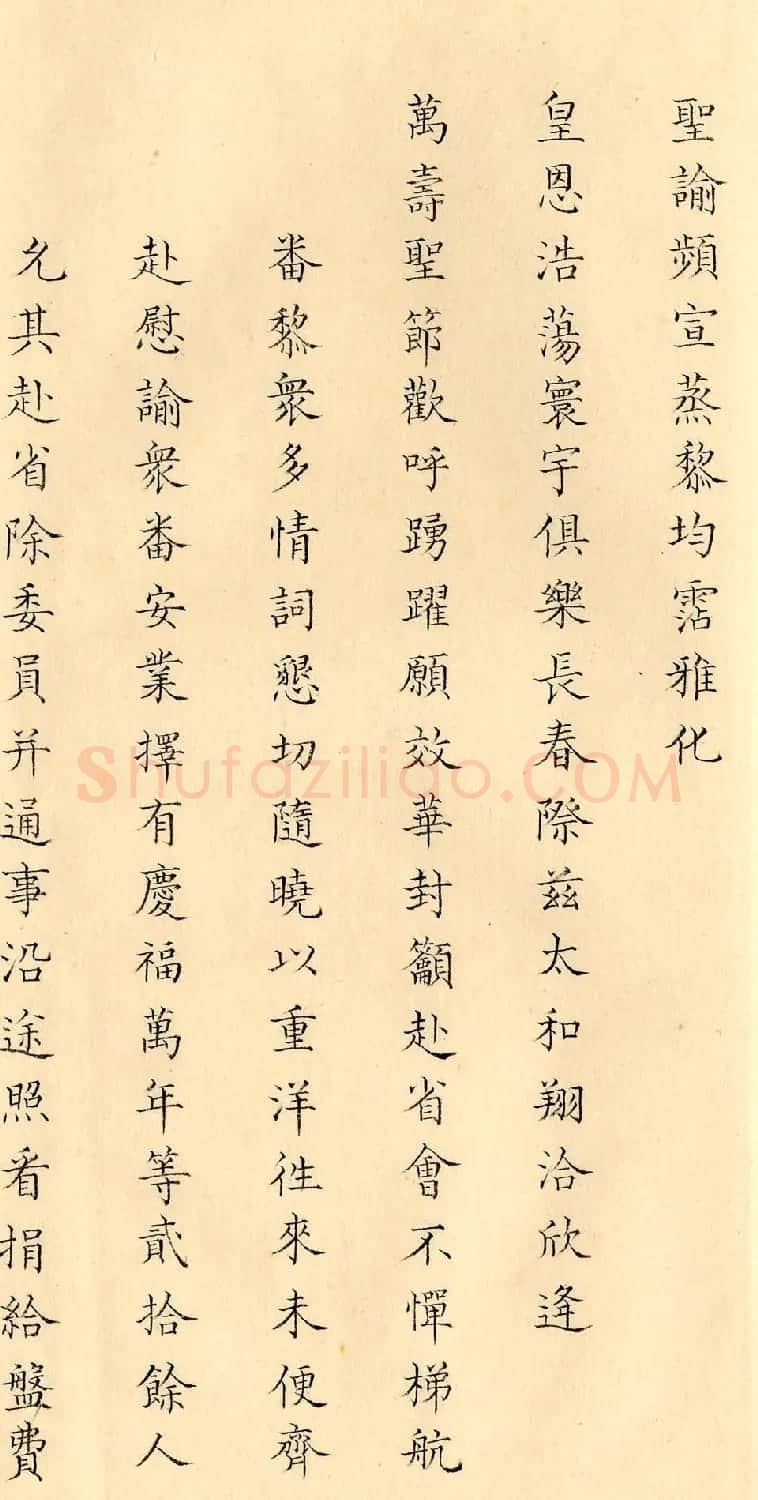 聖諭頻宣蒸黎均霑雅化
皇恩浩蕩寰宇俱樂長春際茲太和翔洽欣逢
萬壽聖節歡呼踴躍願效華封籲赴省會不憚梯航
番黎衆多情詞懇切隨曉以重洋徃來未便齊
赴慰諭衆番安業擇有慶福萬年等貳拾餘人
允其赴省除委員并通事沿途照看捐給盤費
Shufaziliao.COM